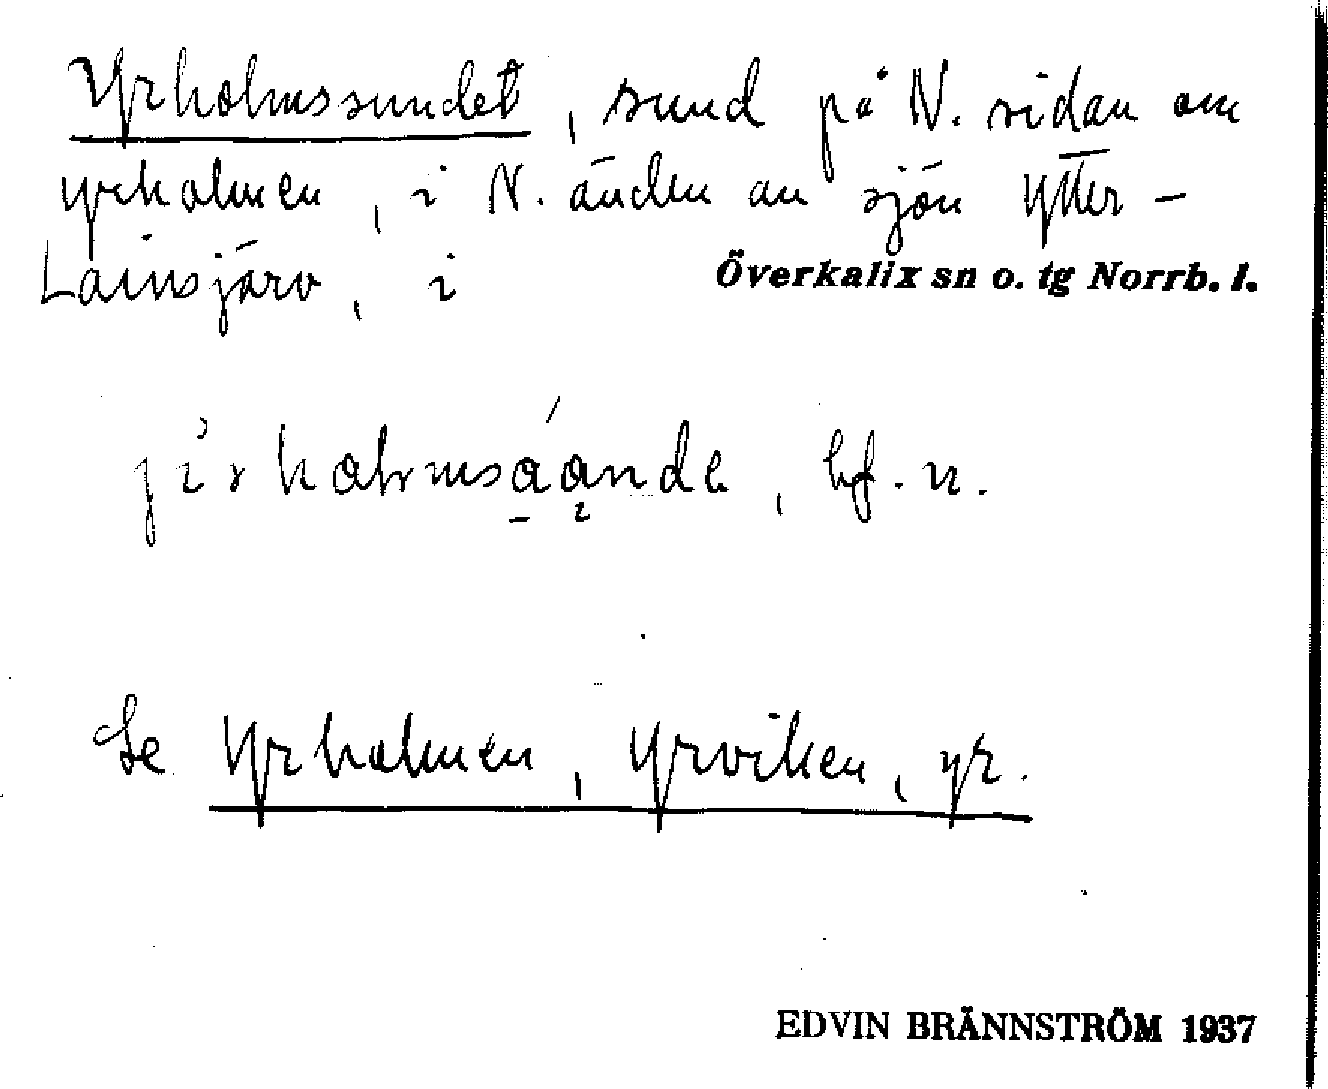 Yrholmssundet, sund på N. sidan om
yrholmen, i N. änden av sjön Ytter-
Lainsjärv, i Överkalix sn o. tg Norrb. l.
bf. n.
Se Yrholmen, Yrviken, yr.
EDVIN BRÄNNSTRÖM 1937